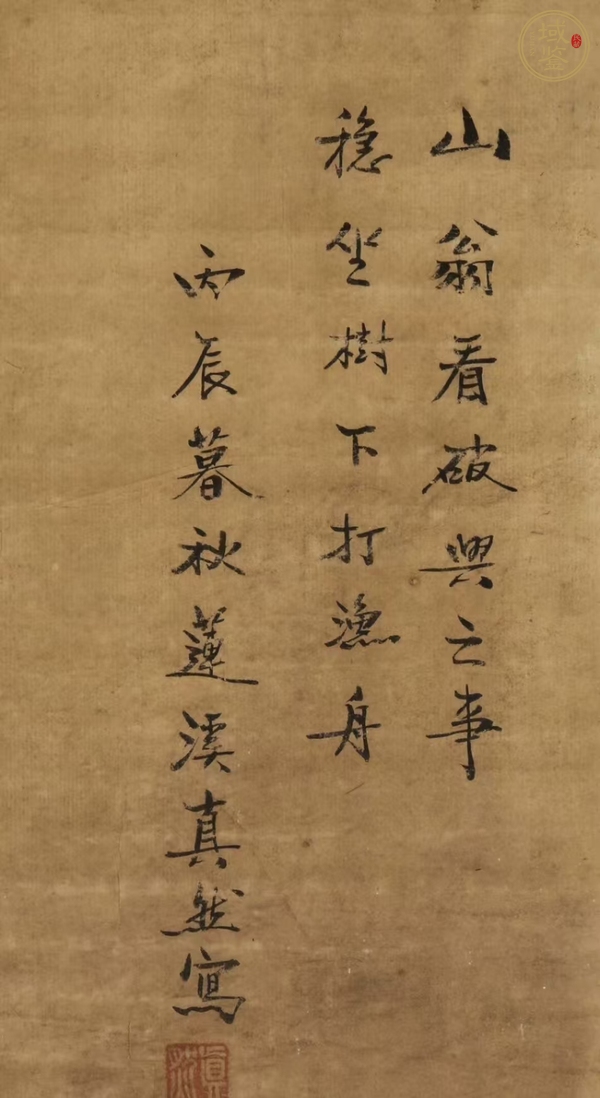 山翁看破興亡事
稳坐樹下打漁舟
丙辰暮秋蓮溪真然寫
真然
域鉴